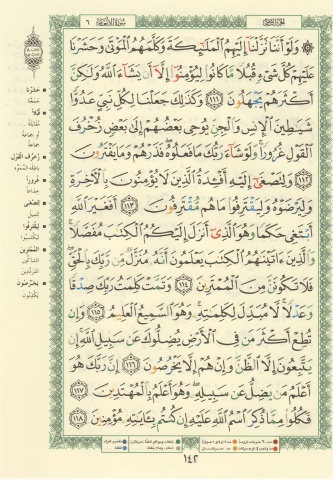 الجزء الثامن
سورة الأنعام
٦
۞ وَلَوْ أَنَّنَا نَزَّلْنَا إِلَيْهِمُ الْمَلَٰٓئِكَةَ وَكَلَّمَهُمُ الْمَوْتَىٰ وَحَشَرْنَا
عَلَيْهِمْ كُلَّ شَىْءٍ قُبُلًا مَّا كَانُوا۟ لِيُؤْمِنُوٓا۟ إِلَّآ أَن يَشَآءَ اللَّهُ وَلَٰكِنَّ
أَكْثَرَهُمْ يَجْهَلُونَ ﴿١١١﴾ وَكَذَٰلِكَ جَعَلْنَا لِكُلِّ نَبِىٍّ عَدُوًّا
شَيَٰطِينَ الْإِنسِ وَالْجِنِّ يُوحِى بَعْضُهُمْ إِلَىٰ بَعْضٍ زُخْرُفَ
الْقَوْلِ غُرُورًا ۚ وَلَوْ شَآءَ رَبُّكَ مَا فَعَلُوهُ ۖ فَذَرْهُمْ وَمَا يَفْتَرُونَ
﴿١١٢﴾ وَلِتَصْغَىٰٓ إِلَيْهِ أَفْـِٔدَةُ الَّذِينَ لَا يُؤْمِنُونَ بِالْـَٔاخِرَةِ
وَلِيَرْضَوْهُ وَلِيَقْتَرِفُوا۟ مَا هُم مُّقْتَرِفُونَ ﴿١١٣﴾ أَفَغَيْرَ اللَّهِ
أَبْتَغِى حَكَمًا وَهُوَ الَّذِىٓ أَنزَلَ إِلَيْكُمُ الْكِتَٰبَ مُفَصَّلًا ۚ
وَالَّذِينَ ءَاتَيْنَٰهُمُ الْكِتَٰبَ يَعْلَمُونَ أَنَّهُۥ مُنَزَّلٌ مِّن رَّبِّكَ بِالْحَقِّ ۖ
فَلَا تَكُونَنَّ مِنَ الْمُمْتَرِينَ ﴿١١٤﴾ وَتَمَّتْ كَلِمَتُ رَبِّكَ صِدْقًا
وَعَدْلًا ۚ لَّا مُبَدِّلَ لِكَلِمَٰتِهِۦ ۚ وَهُوَ السَّمِيعُ الْعَلِيمُ ﴿١١٥﴾ وَإِن
تُطِعْ أَكْثَرَ مَن فِى الْأَرْضِ يُضِلُّوكَ عَن سَبِيلِ اللَّهِ ۚ إِن
يَتَّبِعُونَ إِلَّا الظَّنَّ وَإِنْ هُمْ إِلَّا يَخْرُصُونَ ﴿١١٦﴾ إِنَّ رَبَّكَ هُوَ
أَعْلَمُ مَن يَضِلُّ عَن سَبِيلِهِۦ ۖ وَهُوَ أَعْلَمُ بِالْمُهْتَدِينَ ﴿١١٧﴾
فَكُلُوا۟ مِمَّا ذُكِرَ اسْمُ اللَّهِ عَلَيْهِ إِن كُنتُم بِـَٔايَٰتِهِۦ مُؤْمِنِينَ ﴿١١٨﴾
حشرنا
جمعنا
قبلاً
مقابلة
أو جماعة
جماعة
زخرف القول
باطله المموه
غروراً
خداعاً
لتصغى
لتميل
ليقترفوا
ليكتسبوا
الممترين
الشاكين
المترددين
يخرصون
يكذبون
١٤٢